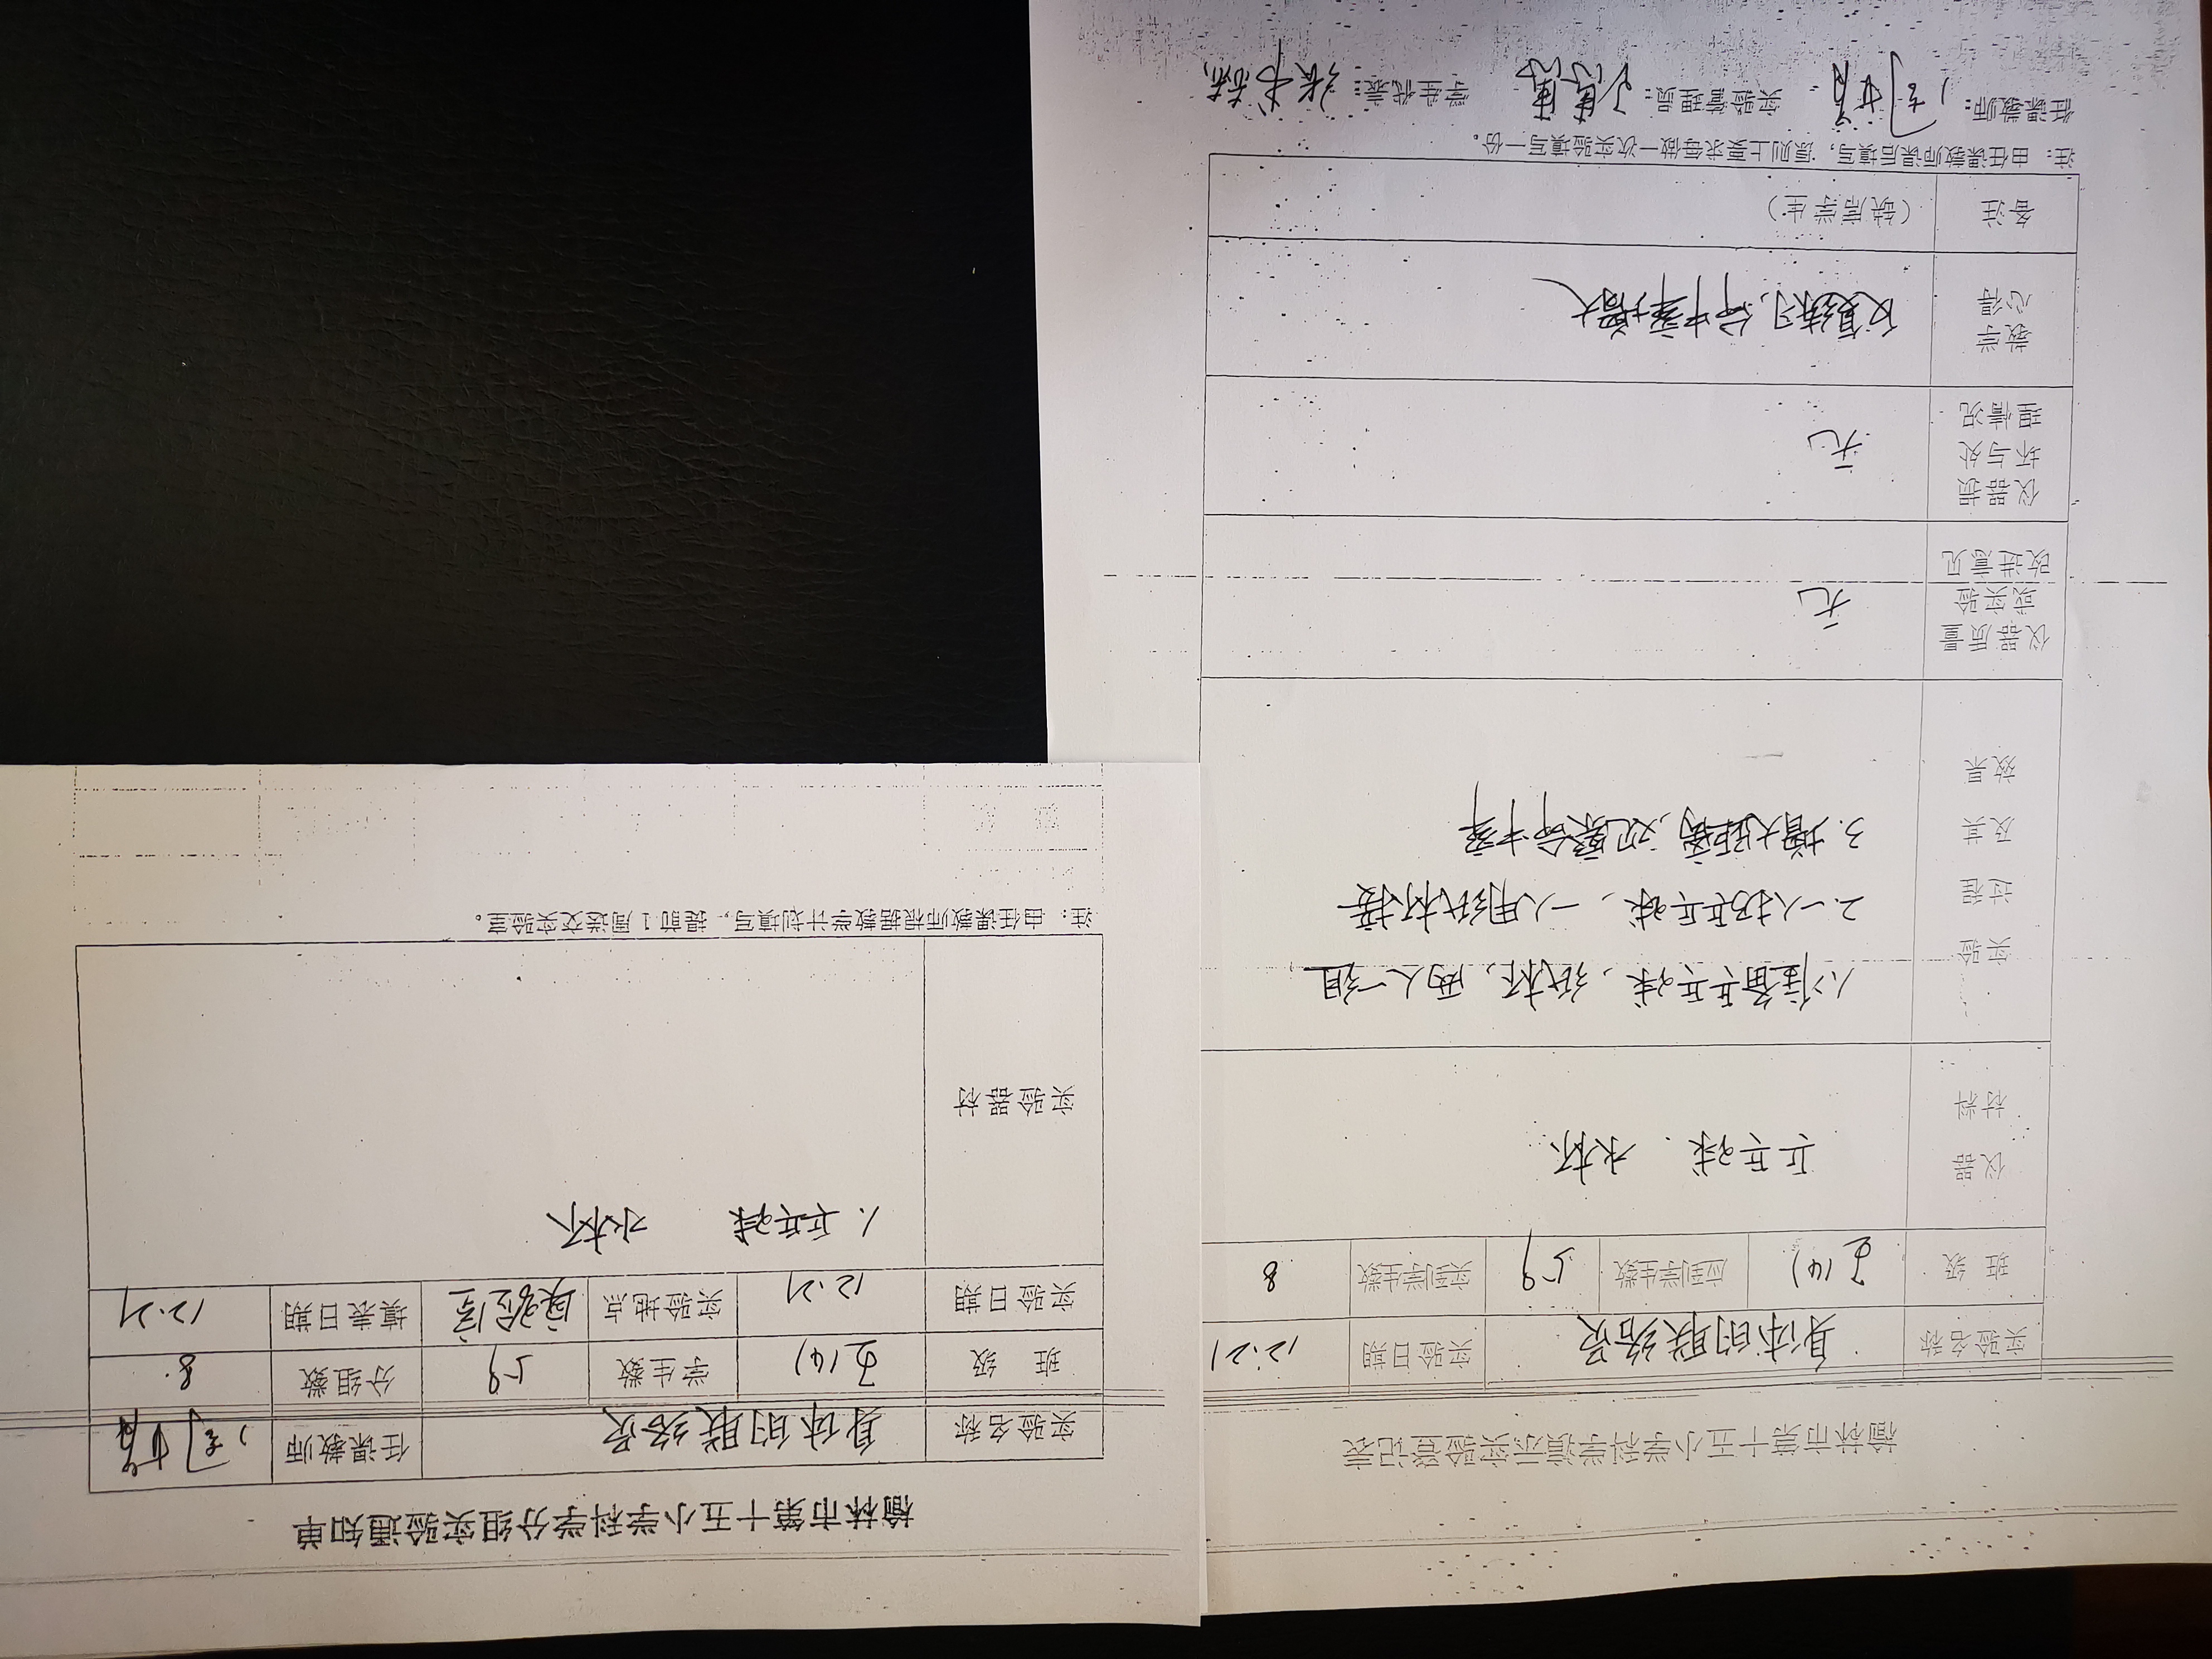 榆林市第十五小学科学分组实验通知单
实验名称 身体的联络员 任课教师
班 级 五(4) 学生数 59 分组数 8
实验日期 12.21 实验地点 实验室 填表日期 12.21
实验器材 1.乒乓球 水杯
注：由任课教师根据教学计划填写，提前1周送交实验室。
榆林市第十五小学科学演示实验登记表
实验名称 身体的联络员 实验日期 12.21
班 级 五(4) 应到学生数 59 实到学生数 8
仪器材料 乒乓球 . 水杯
实验过程及其效果
1.准备乒乓球，纸杯，两人一组
2.一人扔乒乓球，一人用纸杯接
3.增大距离，观察命中率
仪器质量或实验改进意见 无
仪器损坏与处理情况 无
教学心得 反复练习，命中率增大
备注 (缺席学生)
注：由任课教师课后填写，原则上要求每做一次实验填写一份。
任课教师： 实验管理员： 学生代表：